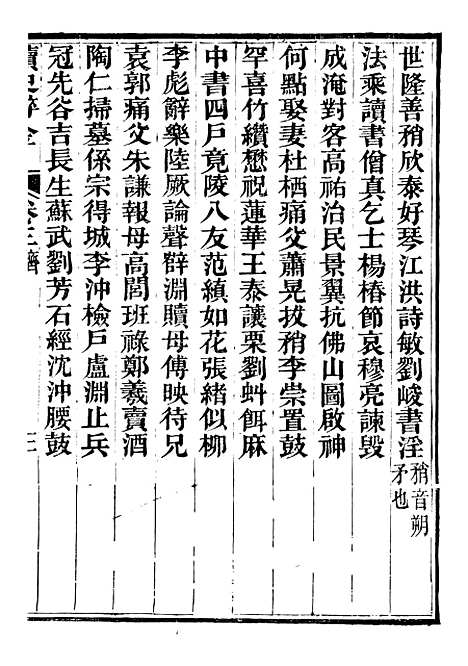 世隆善矟欣泰好琴江洪詩敏劉峻書淫矟音朔矛也
法乘讀書僧真乞士楊椿節哀穆亮諫毀
成淹對客高祐治民景翼抗佛山圖啟神
何點娶妻杜栖痛父蕭晃拔矟李崇置鼓
罕喜竹纘懋祝蓮華王泰讓栗劉蚪餌麻
中書四戶竟陵八友范縝如花張緒似柳
李彪辭樂陸厥論聲辥淵贖母傅映待兄
袁郭痛父朱謙報母高閭班祿鄭羲賣酒
陶仁掃墓係宗得城李沖檢戶盧淵止兵
冠先谷吉長生蘇武劉芳石經沈沖腰鼓
卷三齊